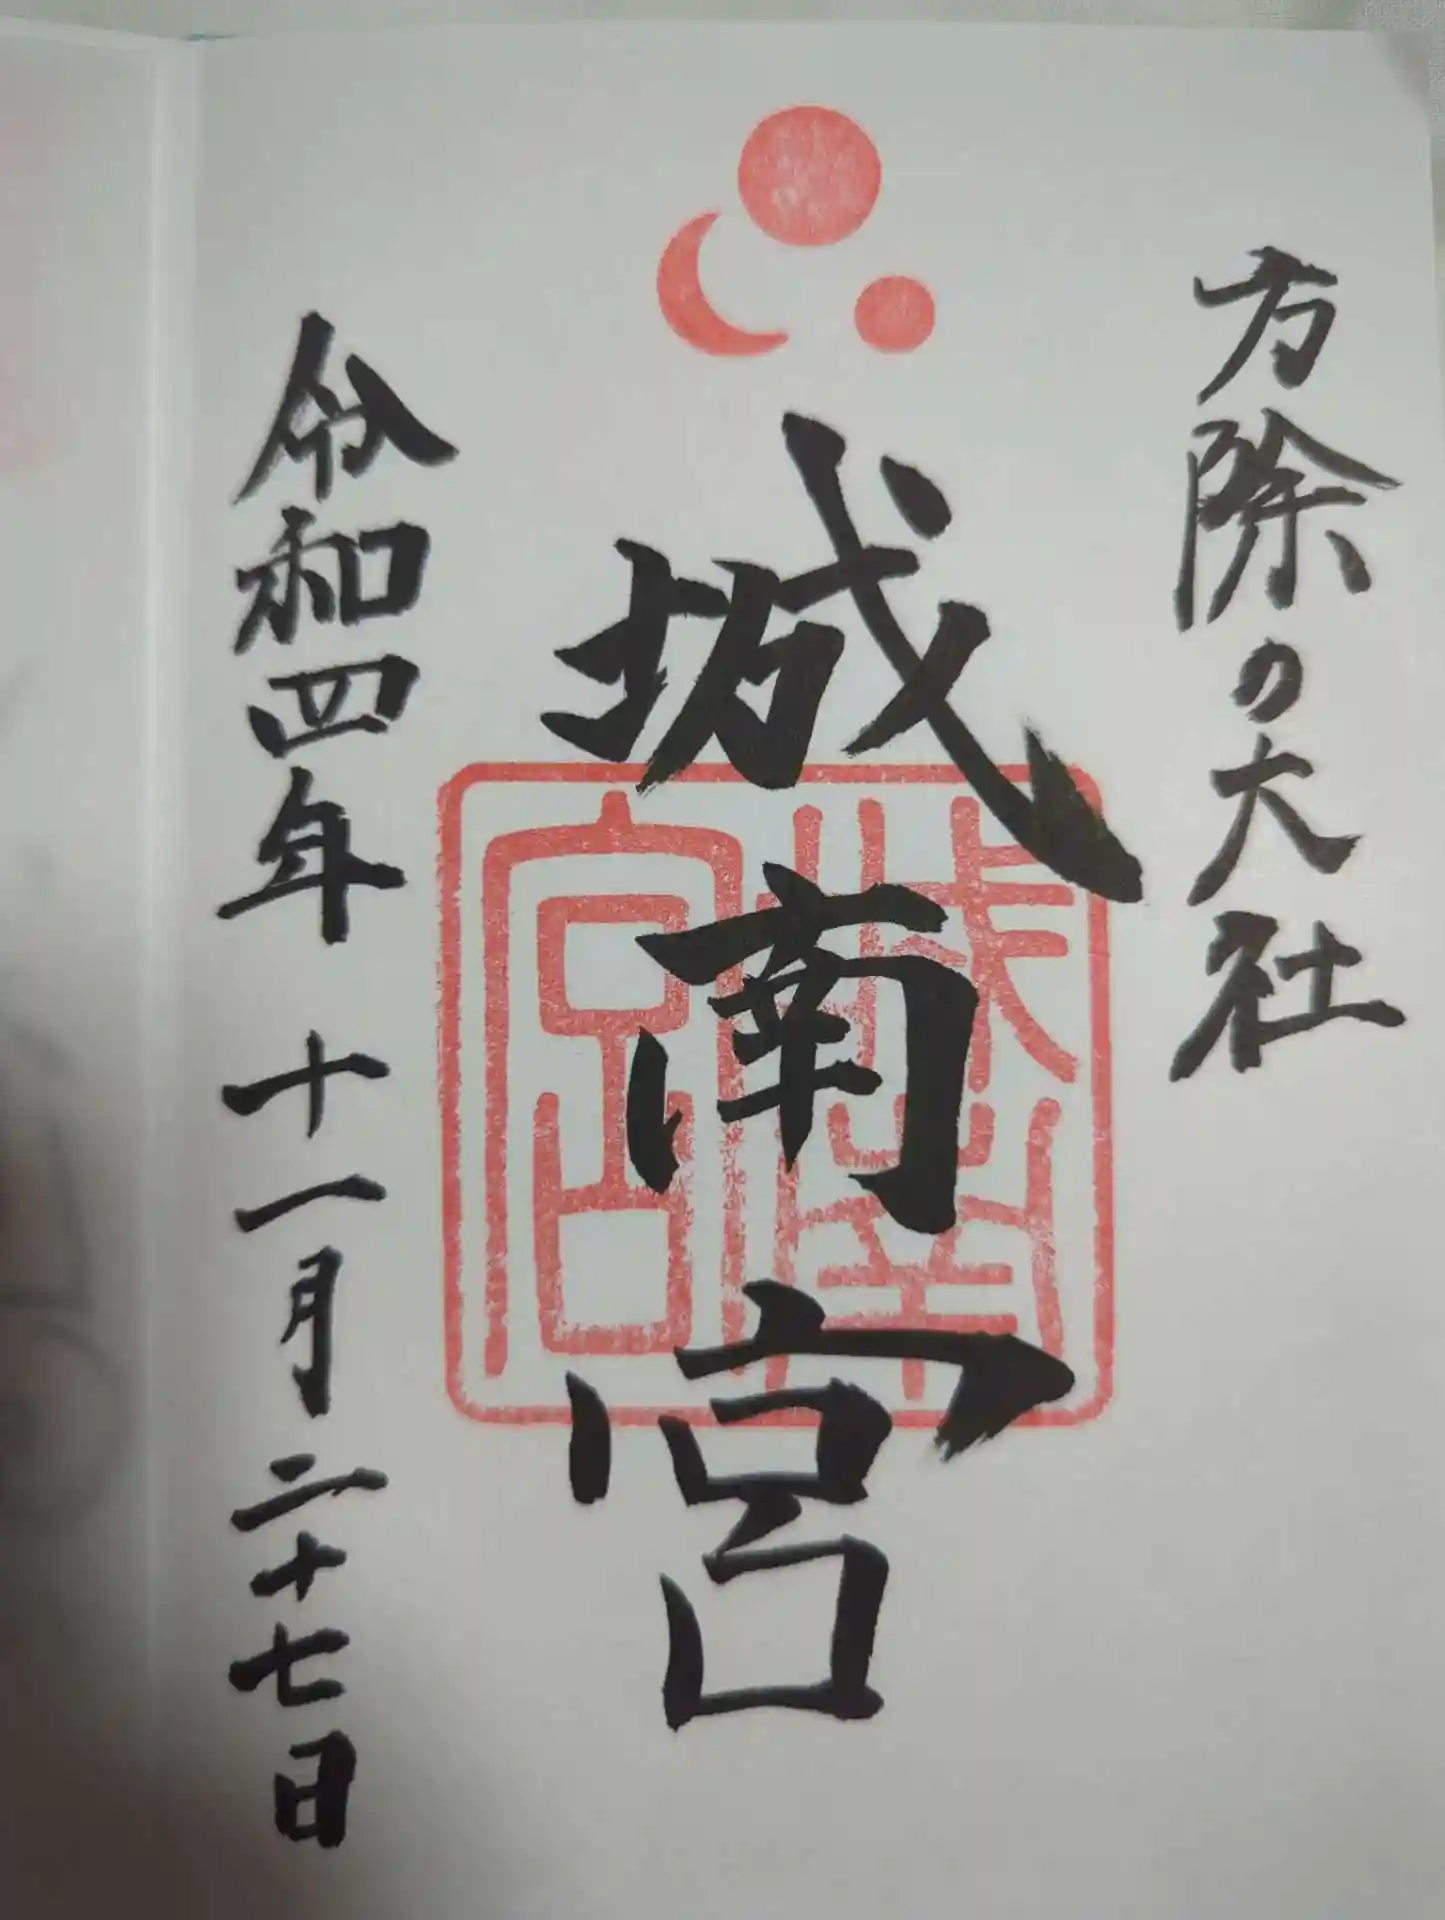 方除の大社
城南宮
城南宮
令和四年 十一月二十七日